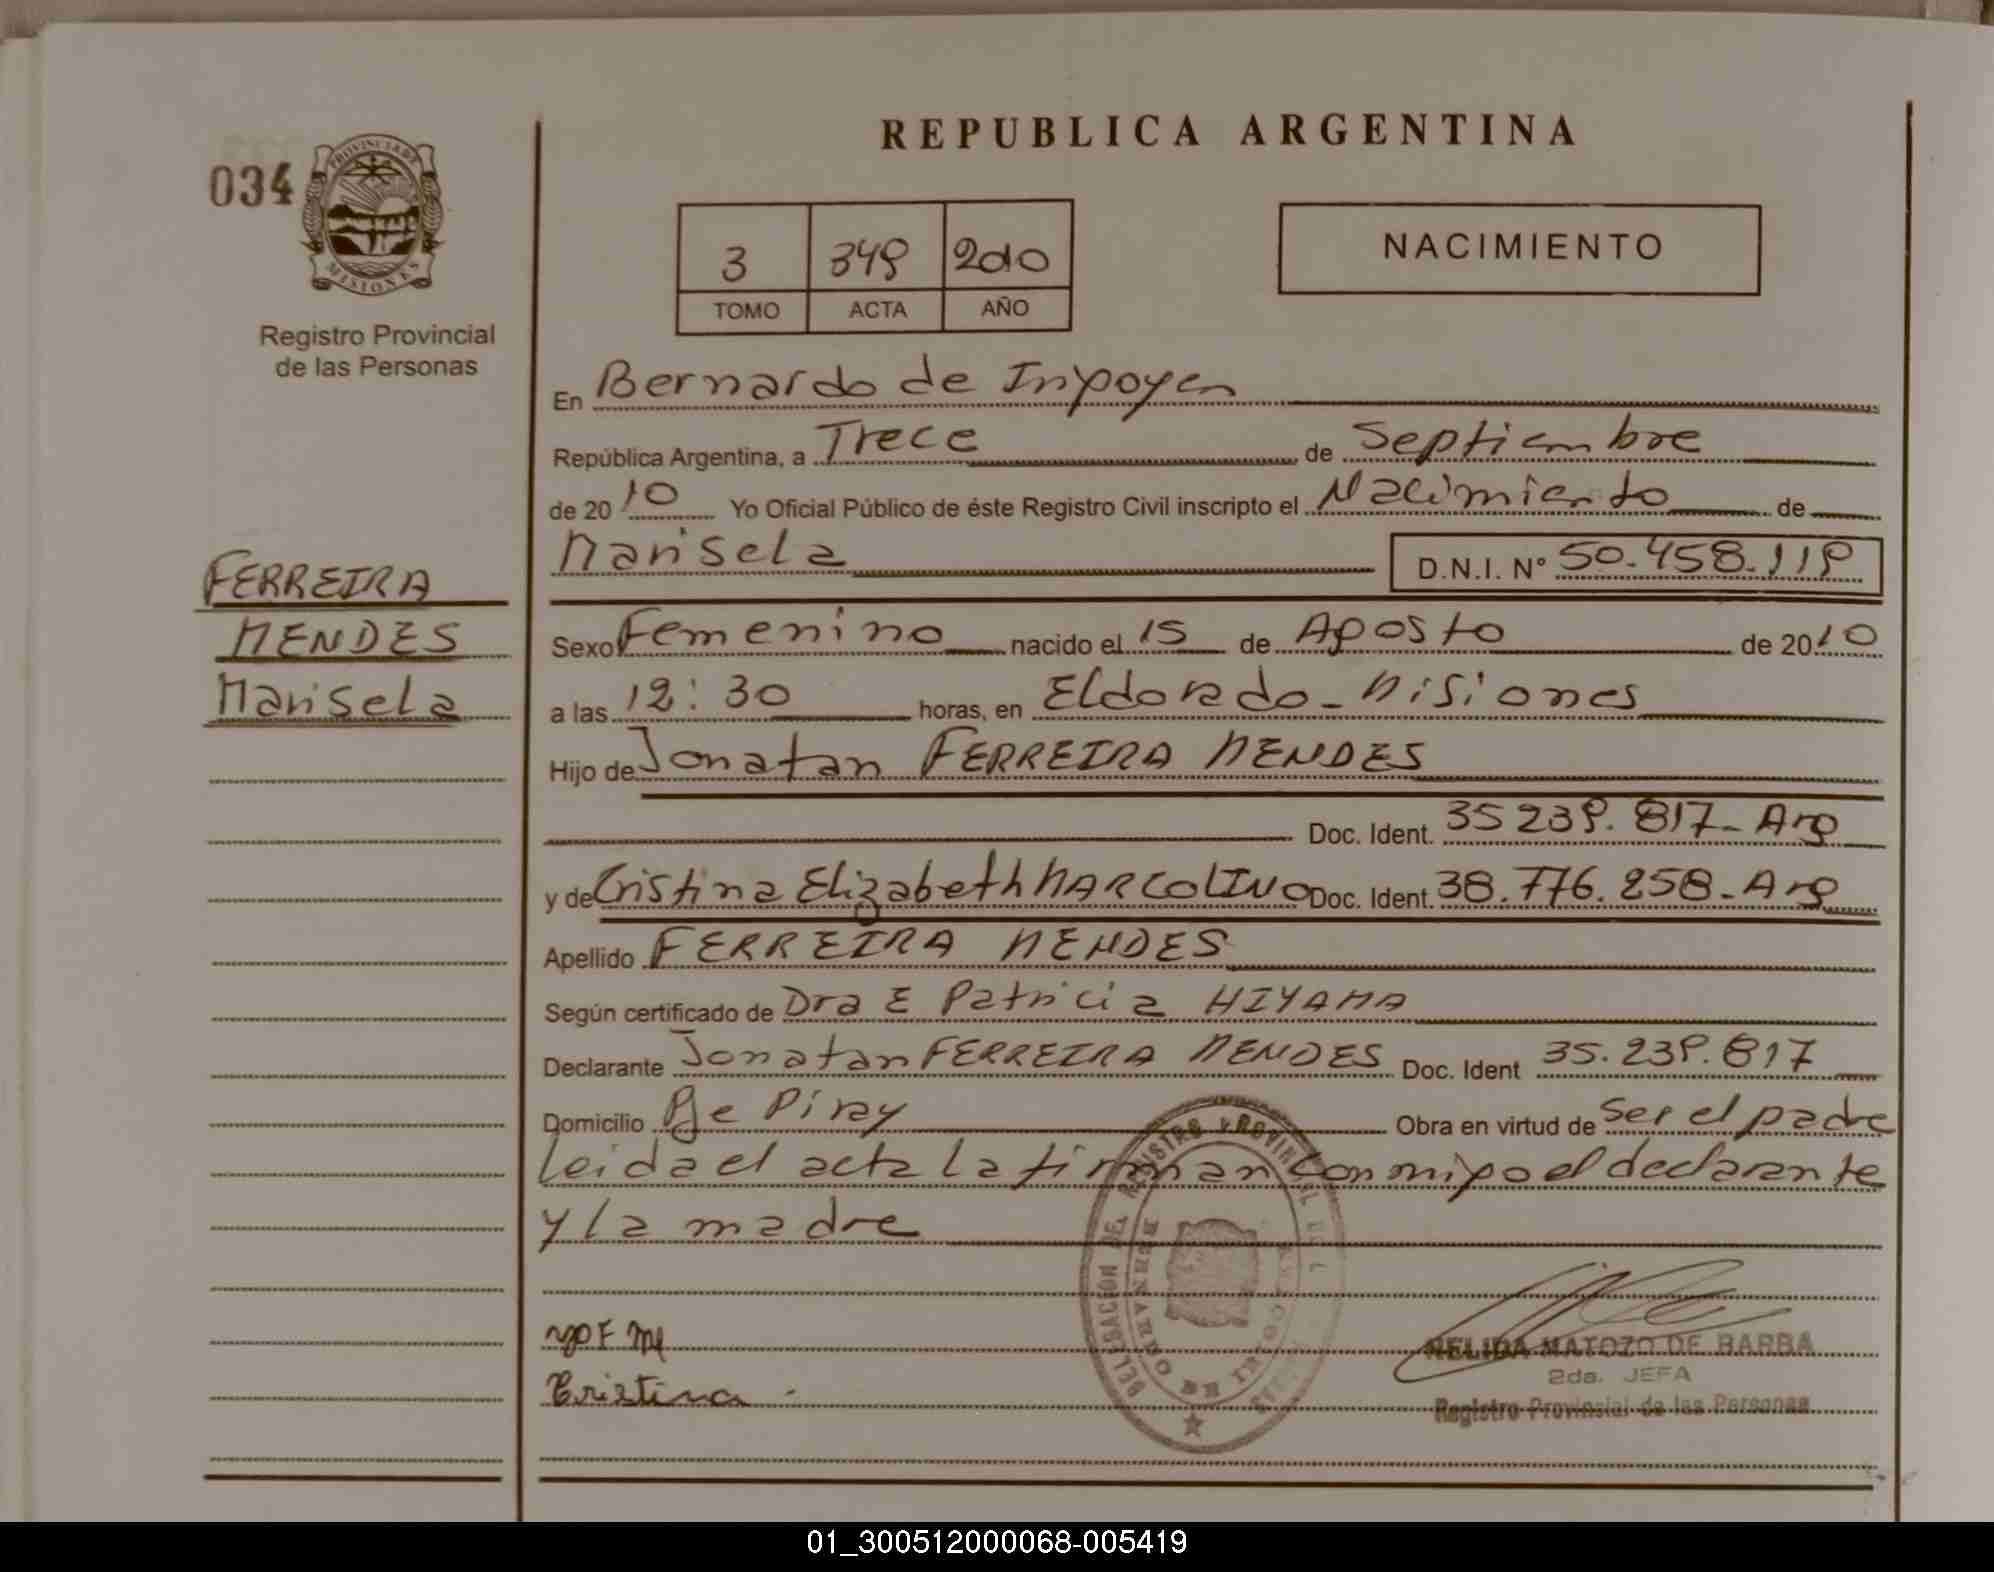 REPUBLICA ARGENTINA
034
PROVINCIA DE
MISIONES
Registro Provincial
de las Personas
3 349 2010
TOMO ACTA AÑO
NACIMIENTO
En Bernardo de Irigoyen
República Argentina, a Trece de Septiembre
de 20 10 Yo Oficial Público de éste Registro Civil inscripto el Nacimiento de
Marisela D.N.I. N° 50.458.119
FERREIRA
MENDES
Marisela
Sexo Femenino nacido el 15 de Agosto de 2010
a las 12:30 horas, en Eldorado - Misiones
Hijo de Jonatan FERREIRA MENDES
Doc. Ident. 35 239.817 - Arg
y de Cristina Elizabeth MARCOLINO Doc. Ident. 38.776.258 - Arg
Apellido FERREIRA MENDES
Según certificado de Dra E Patricia HIYAMA
Declarante Jonatan FERREIRA MENDES Doc. Ident 35.239.817
Domicilio Pje Piray Obra en virtud de Ser el padre
Leida el acta la firman con migo el declarante
y la madre
DELEGACION DEL REGISTRO PROVINCIAL DE L
BERNARDO DE IRIGOYEN
Cristina
NELIDA MATOZO DE BARBA
2da. JEFA
Registro Provincial de las Personas
01_300512000068-005419